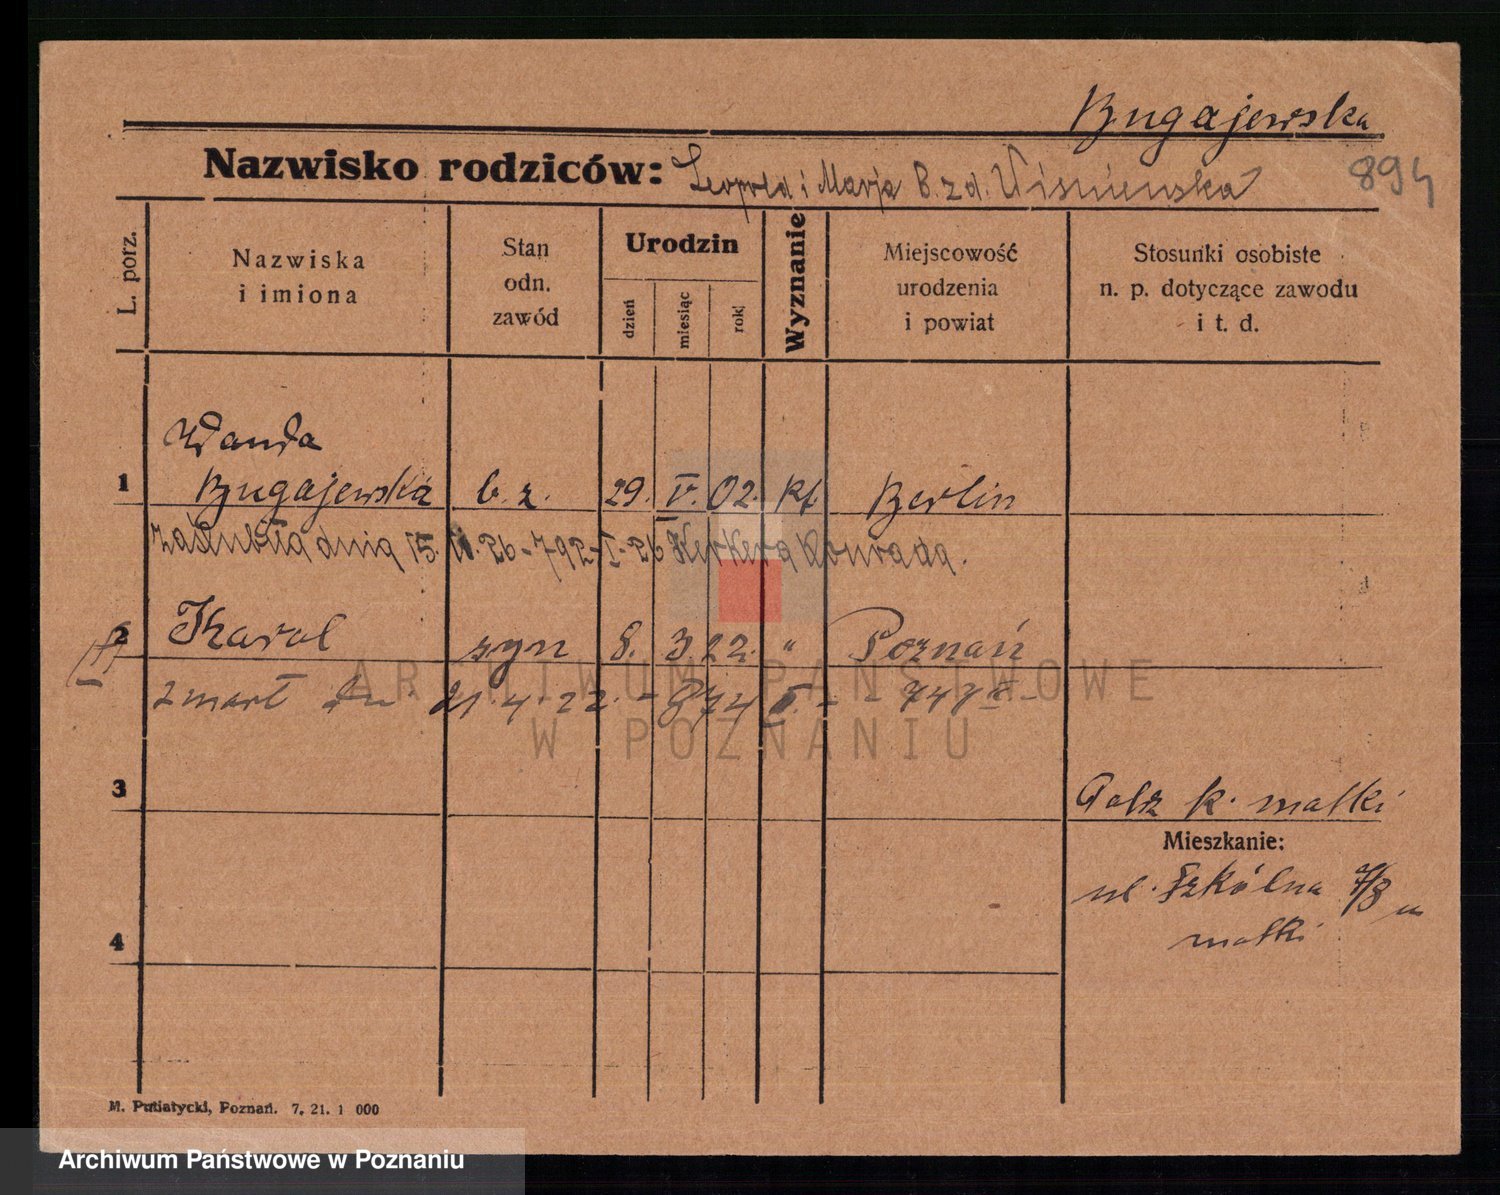 Bugajewska
Nazwisko rodziców: Leopold i Marja B. z d. Wiśniewska
894
L. porz.
Nazwiska
i imiona
Stan
odn.
zawód
Urodzin
dzień
miesiąc
rok
Wyznanie
Miejscowość
urodzenia
i powiat
Stosunki osobiste
n. p. dotyczące zawodu
i t. d.
Wanda
1 Bugajewska b. z. 29. V. 02. kt. Berlin
zaślubiła dnia 15. 26 - 792 - I - 26 Konrada.
2 Karol syn 8. 3. 22. " Poznań
(†)
zmarł dn. 21. 4. 22. - 874 -
ARCHIWUM PAŃSTWOWE
W POZNANIU
3
k. matki
Mieszkanie:
ul. Szkólna 7/8 u
matki
4
M. Putiatycki, Poznań. 7. 21. 1 000
Archiwum Państwowe w Poznaniu